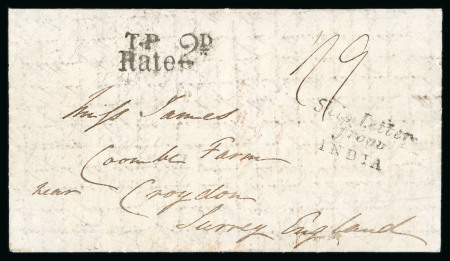 T.P
Rate 2D
Ship Letter
from
INDIA
Miss James
Coombe Farm
near Croydon
Surrey England